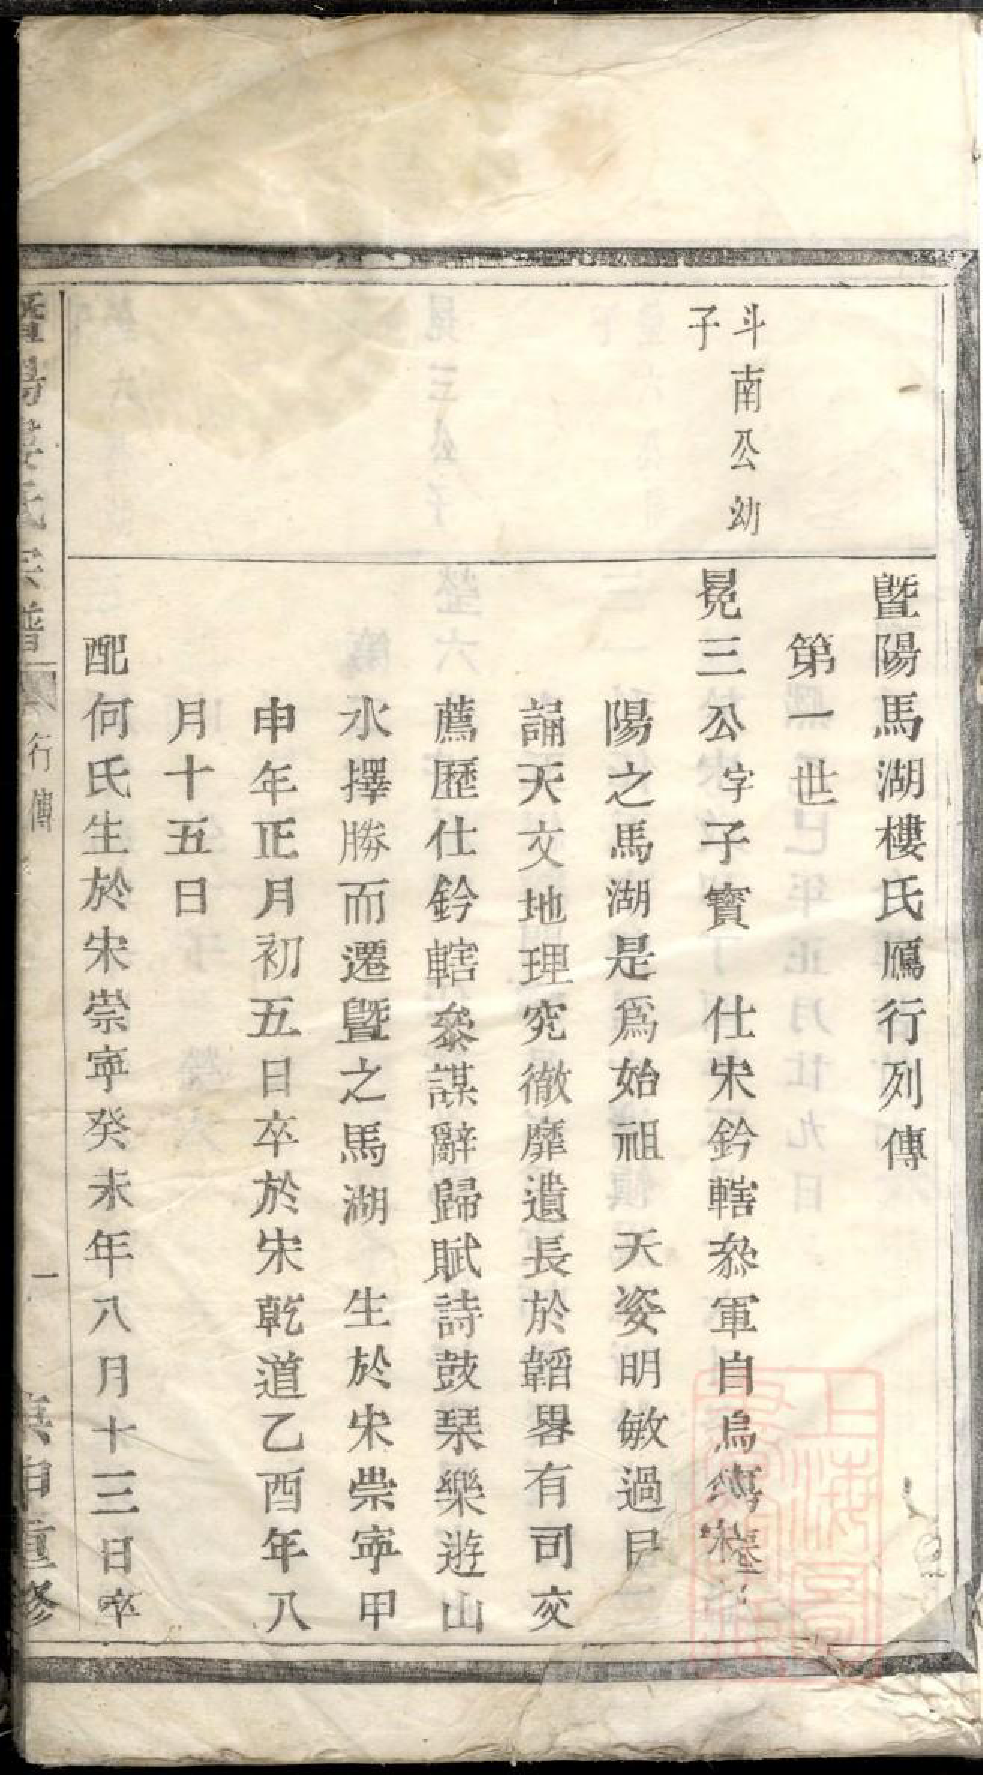 暨陽馬湖樓氏鴈行列傳
第一世
斗南公幼
子
冕三公字子寶 仕宋鈐轄叅軍自烏傷
陽之馬湖是爲始祖 天姿明敏過目
誦天文地理究徹靡遺長於韜畧有司交
薦歷仕鈐轄叅謀辭歸賦詩鼓琹樂遊山
水擇勝而遷暨之馬湖 生於宋崇寧甲
申年正月初五日卒於宋乾道乙酉年八
月十五日
配何氏生於宋崇寧癸未年八月十三日卒
行傳
一
上海圖